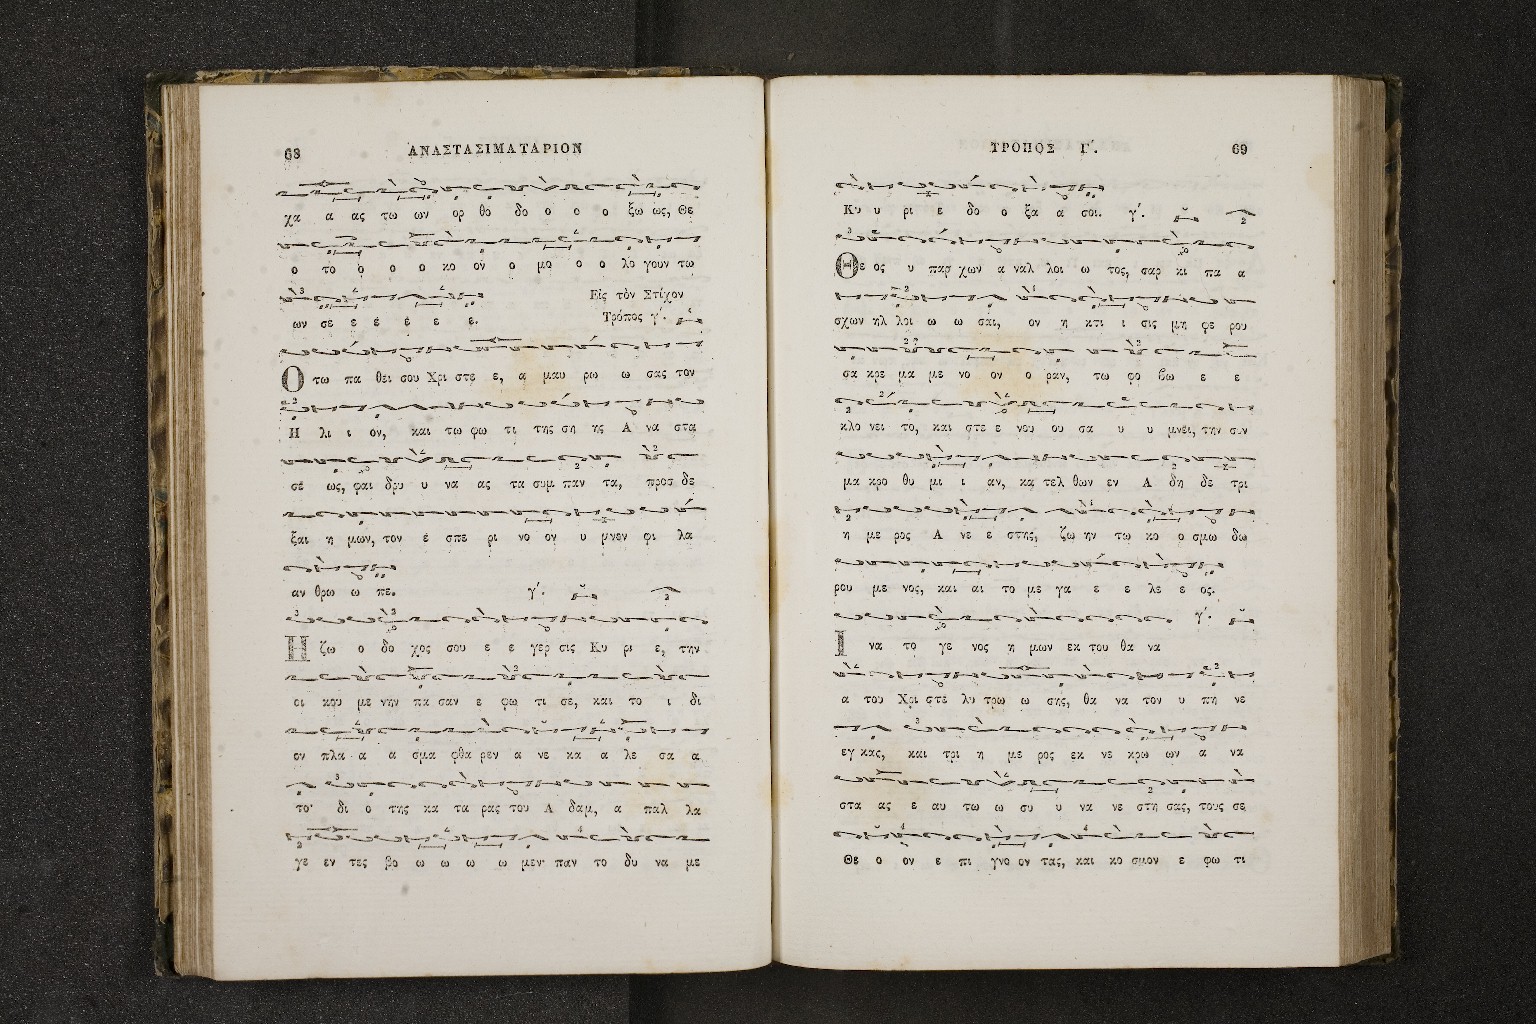 68 ΑΝΑΣΤΑΣΙΜΑΤΑΡΙΟΝ
χα α ας τω ων ορ θο δο ο ο ο ξω ως, Θε
ο το ο ο ο κο ον ο μο ο ο λο γουν τω
ων σε ε ε ε ε ε. Εἰς τὸν Στίχον
Τρόπος γ΄.
Ο τω πα θει σου Χρι στε ε, α μαυ ρω ω σας τον
Η λι ι ον, και τω φω τι της ση ης Α να στα
σε ως, φαι δρυ υ να ας τα συμ παν τα, προσ δε
ξαι η μων, τον ε σπε ρι νο ον υ μνον φι λα
αν θρω ω πε. γ΄.
Η ζω ο δο χος σου ε ε γερ σις Κυ ρι ε, την
οι κου με νην πα σαν ε φω τι σε, και το ι δι
ον πλα α α σμα φθα ρεν α νε κα α λε σα α
το· δι ο της κα τα ρας του Α δαμ, α παλ λα
γε εν τες βο ω ω ω ω μεν· παν το δυ να με
ΤΡΟΠΟΣ Γ΄. 69
Κυ υ ρι ε δο ο ξα α σοι. γ΄.
Θε ος υ παρ χων α ναλ λοι ω τος, σαρ κι πα α
σχων ηλ λοι ω ω σαι, ον η κτι ι σις μη φε ρου
σα κρε μα με νο ον ο ραν, τω φο βω ε ε
κλο νει το, και στε ε νου ου σα υ υ μνει, την συν
μα κρο θυ μι ι αν, κα τελ θων εν Α δη δε τρι
η με ρος Α νε ε στης, ζω ην τω κο ο σμω δω
ρου με νος, και αι το με γα ε ε λε ε ος.
γ΄.
Ι να το γε νος η μων εκ του θα να
α του Χρι στε λυ τρω ω σης, θα να τον υ πη νε
εγ κας, και τρι η με ρος εκ νε κρω ων α να
στα ας ε αυ τω ω συ υ να νε στη σας, τους σε
Θε ο ον ε πι γνο ον τας, και κο σμον ε φω τι